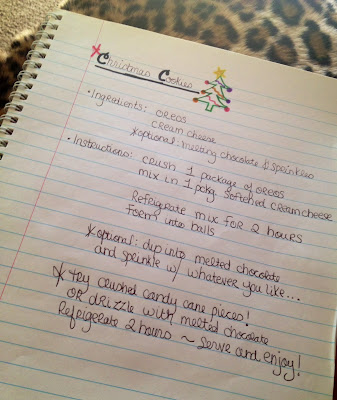 * Christmas Cookies
• Ingredients: OREOS
CREAM CHEESE
*optional: melting chocolate & sprinkles
• Instructions: CRUSH 1 package OF OREOS
mix in 1 pckg softened creamcheese
Refrigerate mix FOR 2 HOURS
FORM into balls
*optional: dip into melted chocolate
and sprinkle w/ whatever you like...
* try crushed candy cane pieces!
OR drizzle with melted chocolate
Refrigerate 2 hours ~ Serve and enjoy!